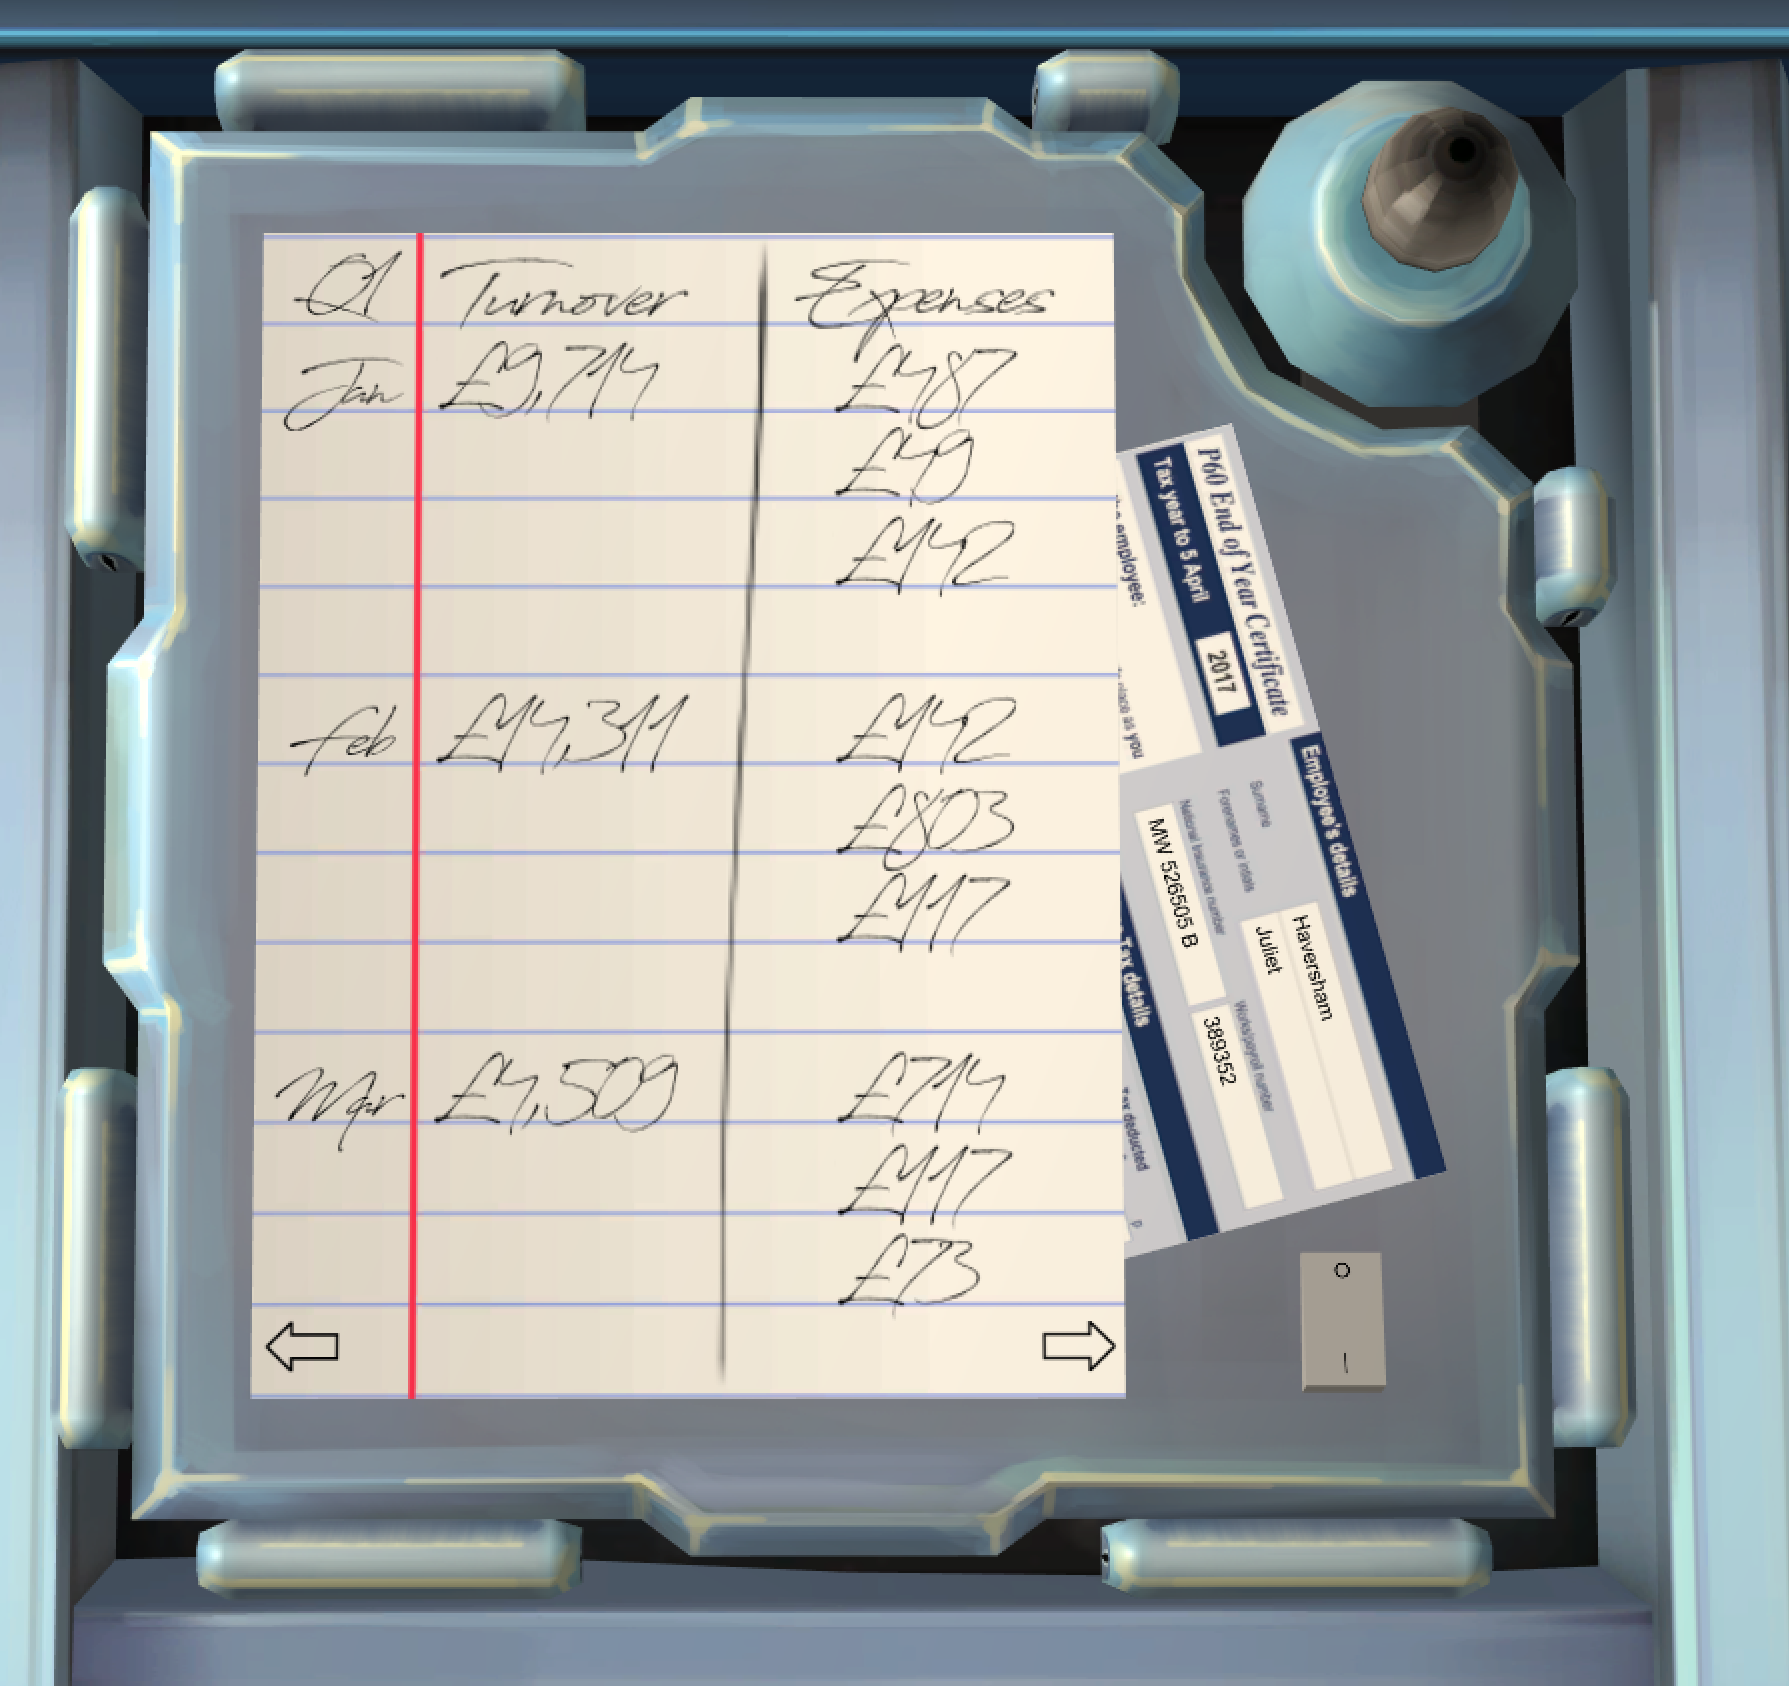 Q1 Turnover Expenses
Jan £9,714 £487
£49
£142
Feb £14,311 £142
£803
£117
Mar £4,509 £714
£117
£73
P60 End of Year Certificate
Tax year to 5 April 2017
employee:
place as you
Employee's details
Surname
Haversham
Forenames or initials
Juliet
National Insurance number
Works/payroll number
MW 526505 B
389352
Tax details
Tax deducted
p